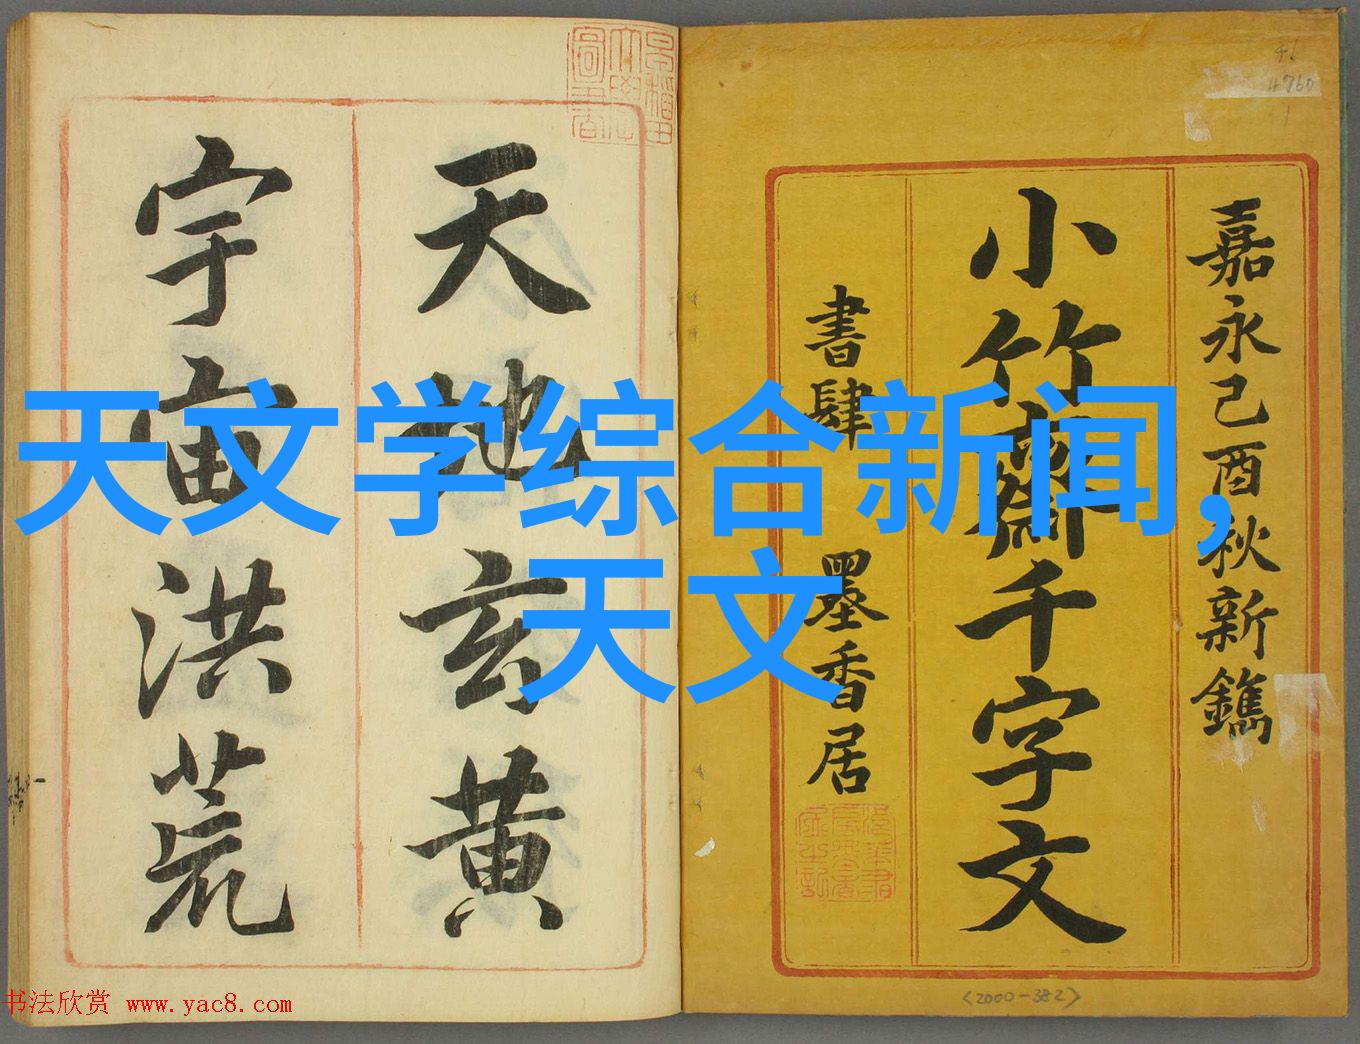 嘉永己酉秋新鐫
小竹齋千字文
書肆 墨香居
天地玄黄
宇宙洪荒
天文学综合新闻,
天文
书法欣赏 www.yac8.com
4760
<2000-382>